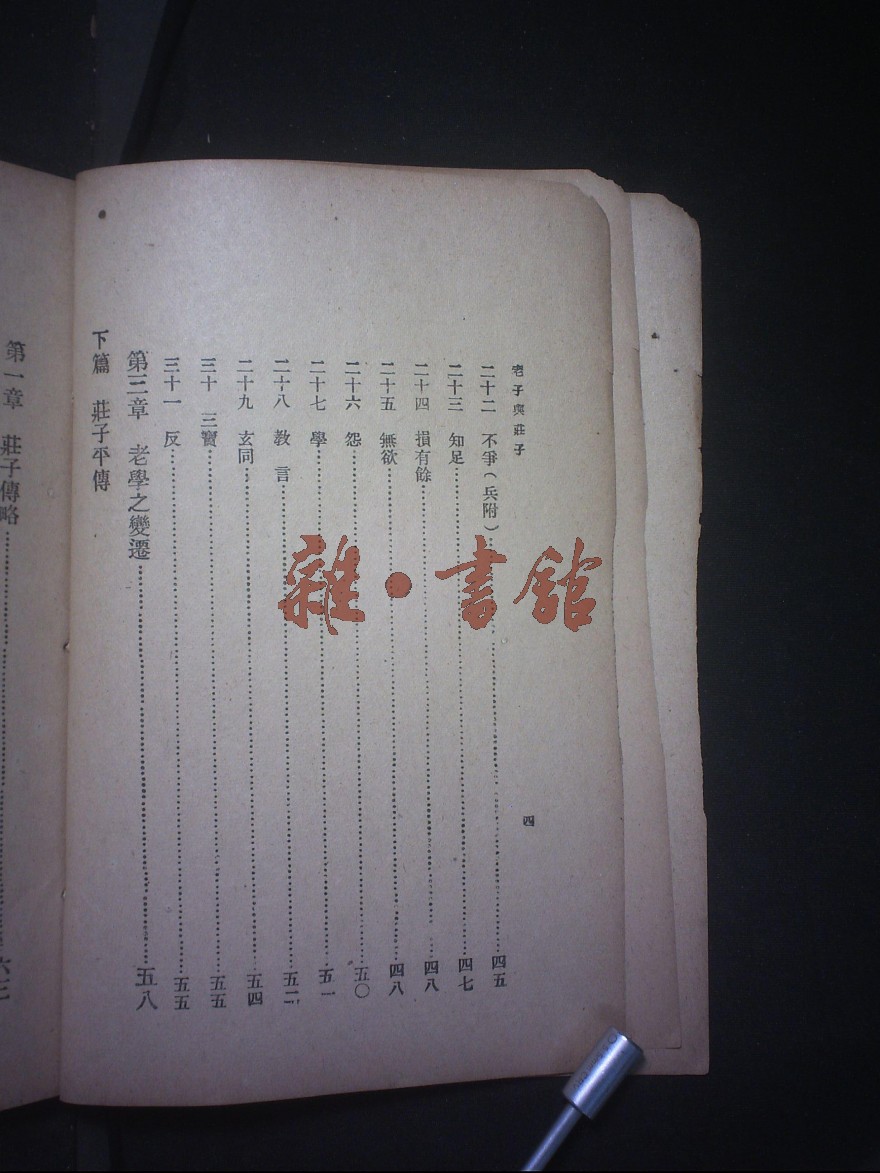 老子與莊子
四
二十二 不爭（兵附）四五
二十三 知足 四七
二十四 損有餘 四八
二十五 無欲 四八
二十六 怨 五〇
二十七 學 五一
二十八 教言 五二
二十九 玄同 五四
三十 三寶 五五
三十一 反 五五
第三章 老學之變遷 五八
下篇 莊子平傳
第一章 莊子傳略
雜·書館